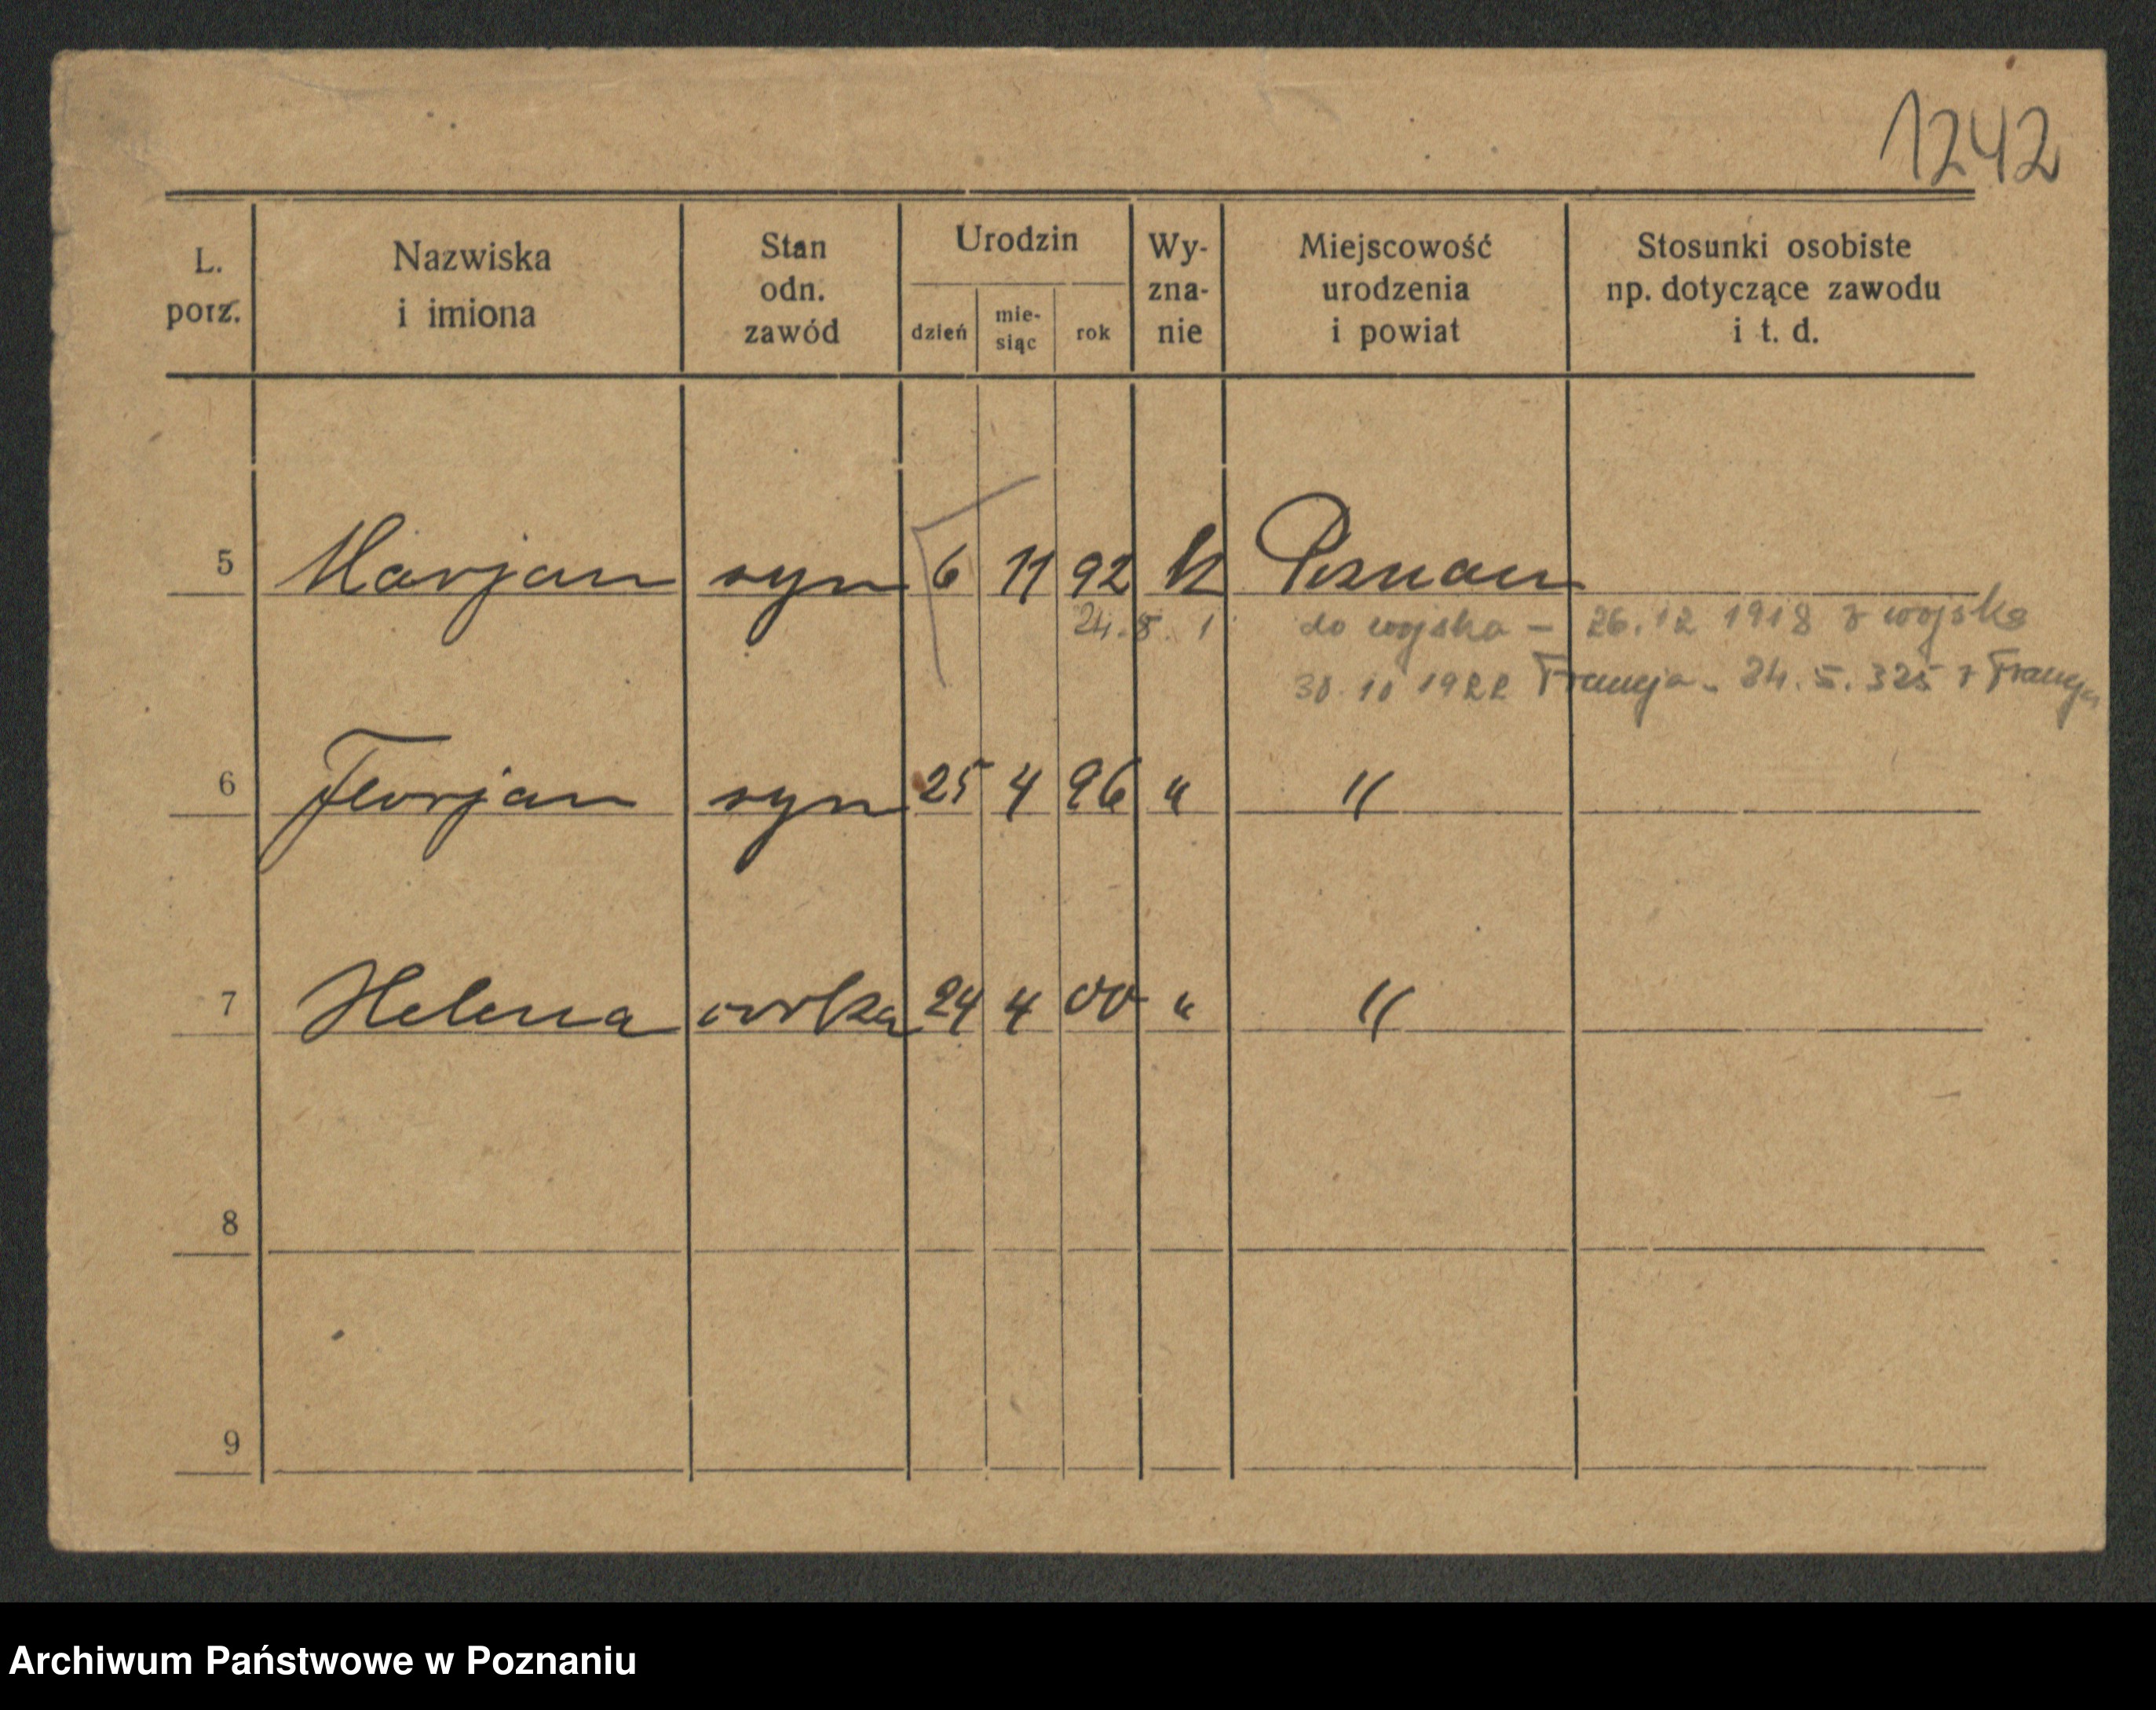 1242
L. porz. Nazwiska i imiona Stan odn. zawód Urodzin dzień mie-siąc rok Wy-zna-nie Miejscowość urodzenia i powiat Stosunki osobiste np. dotyczące zawodu i t. d.
5 Marjan syn 6 11 92 k Poznan
24.8. 1 do wojska – 26.12 1918 z wojska
30.10 1922 Francja - 24.5.325 z Francji
6 Florjan syn 25 4 96 " "
7 Helena corka 24 4 00 " "
8
9
Archiwum Państwowe w Poznaniu